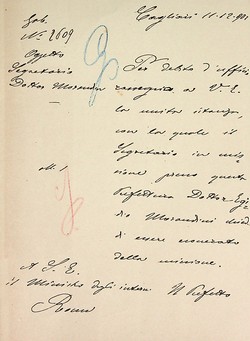 Gab.
N. 2609
Oggetto
Segretario
Dottor Morandini
all. 1
Cagliari 11-12-
Per debito d'ufficio
a V. E.
la unita istanza,
con la quale il
Segretario in mis
sione presso questa
Prefettura Dottor Egi
dio Morandini chiede
di essere esonerato
dalla missione.
Il Prefetto
A S. E.
il Ministro degli interni
Roma